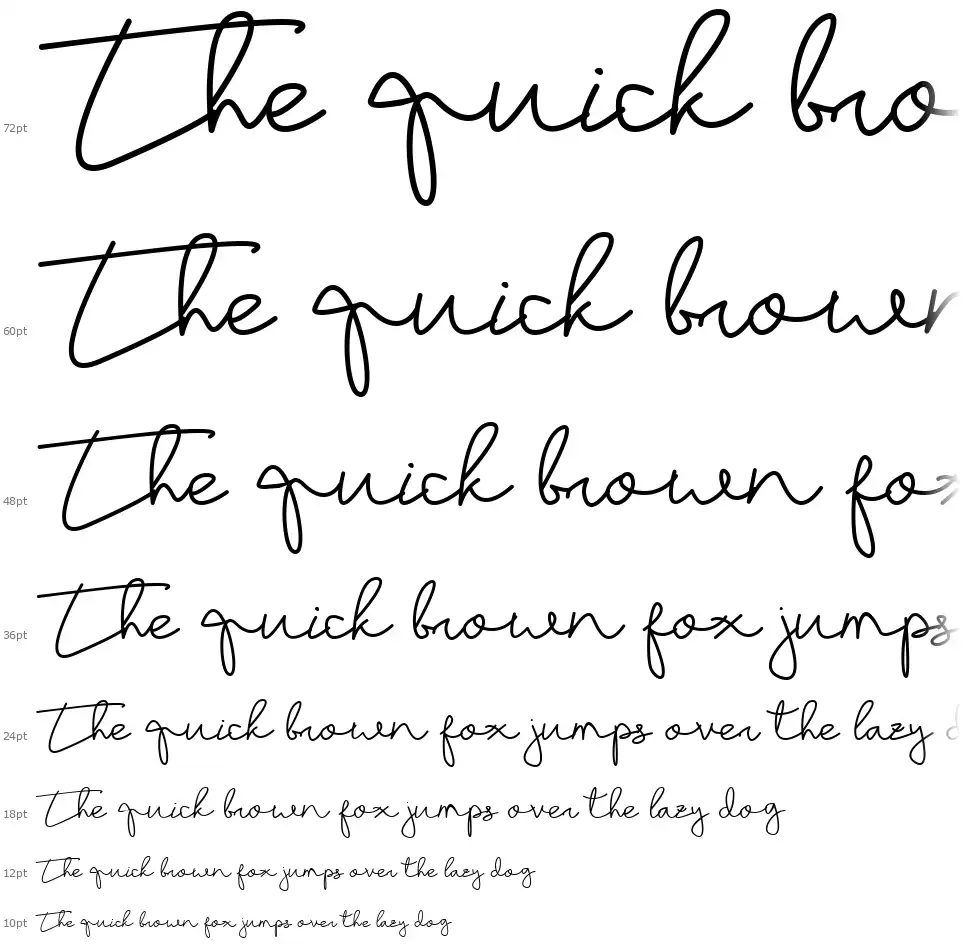 72pt The quick bro
60pt The quick brown
48pt The quick brown fox
36pt The quick brown fox jumps
24pt The quick brown fox jumps over the lazy d
18pt The quick brown fox jumps over the lazy dog
12pt The quick brown fox jumps over the lazy dog
10pt The quick brown fox jumps over the lazy dog